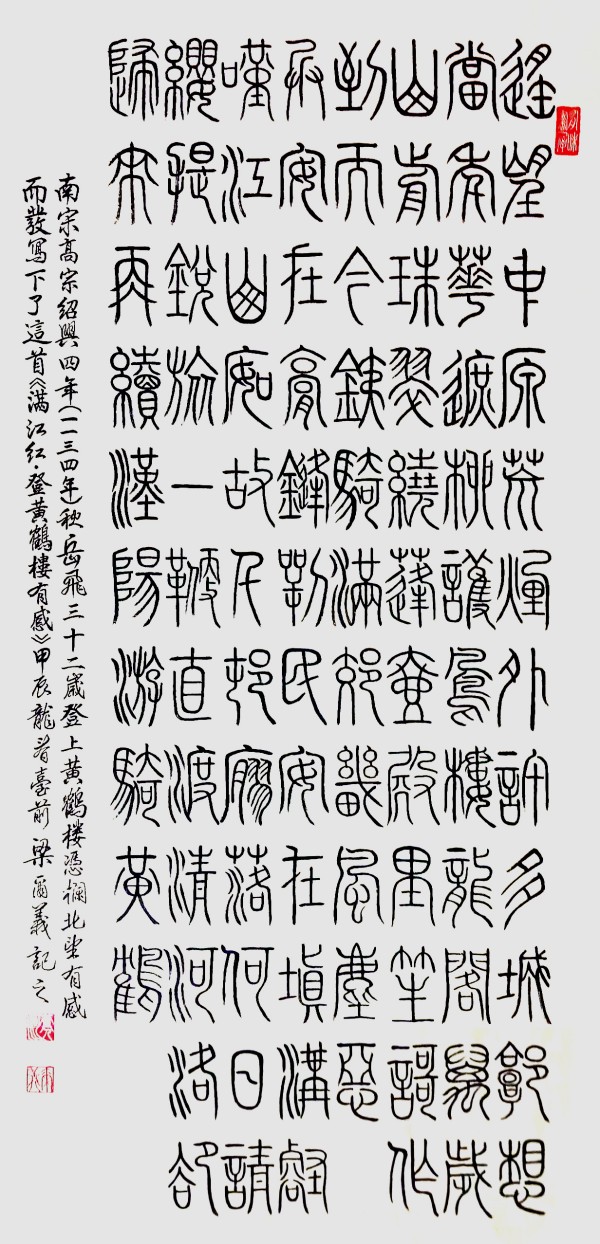 遙望中原荒煙外許多城郭想
當年華遮柳護鳳樓龍閣萬歲
山前珠翠繞蓬壺殿里笙謌作
到而今鐵騎滿郊畿風塵惡
兵安在膏鋒鍔民安在填溝壑
嘆江山如故千邨寥落何日請
纓提銳旅一鞭直渡清河洛卻
歸來再續漢陽游騎黃鶴
南宋高宗紹興四年(一一三四年)秋岳飛三十二歲登上黃鶴楼憑欄北望有感
而發寫下了這首《满江红·登黃鶴樓有感》甲辰龍臺前梁爾義記之